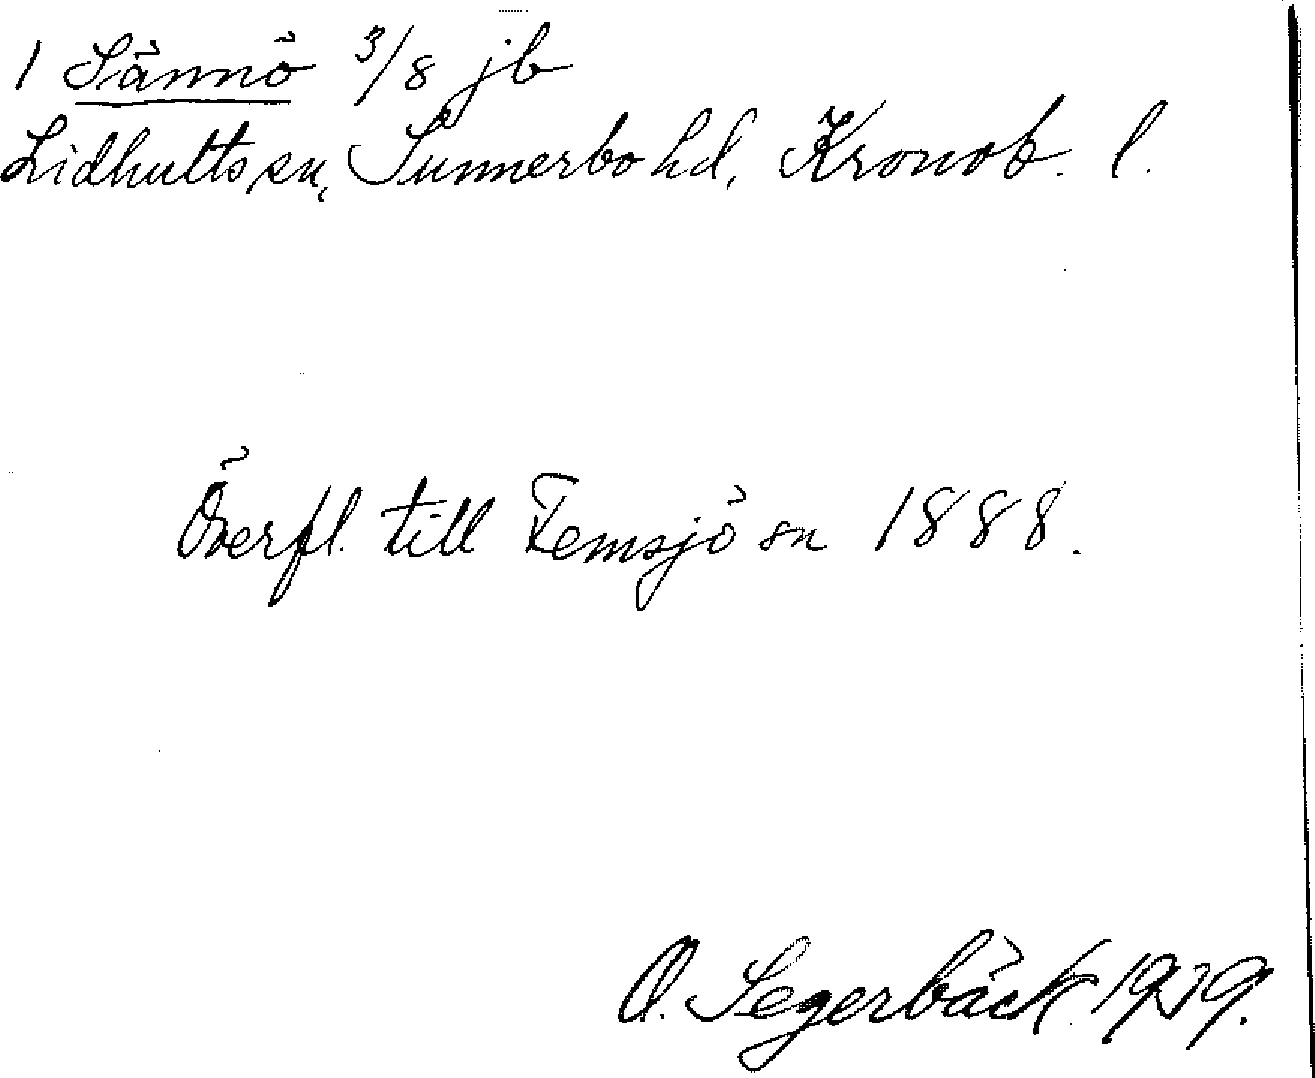 1 Sännö 3/8 jb
Lidhults sn, Sunnerbo hd, Kronob. l.
Överfl. till Femsjö sn 1888.
O. Segerbäck. 1939.